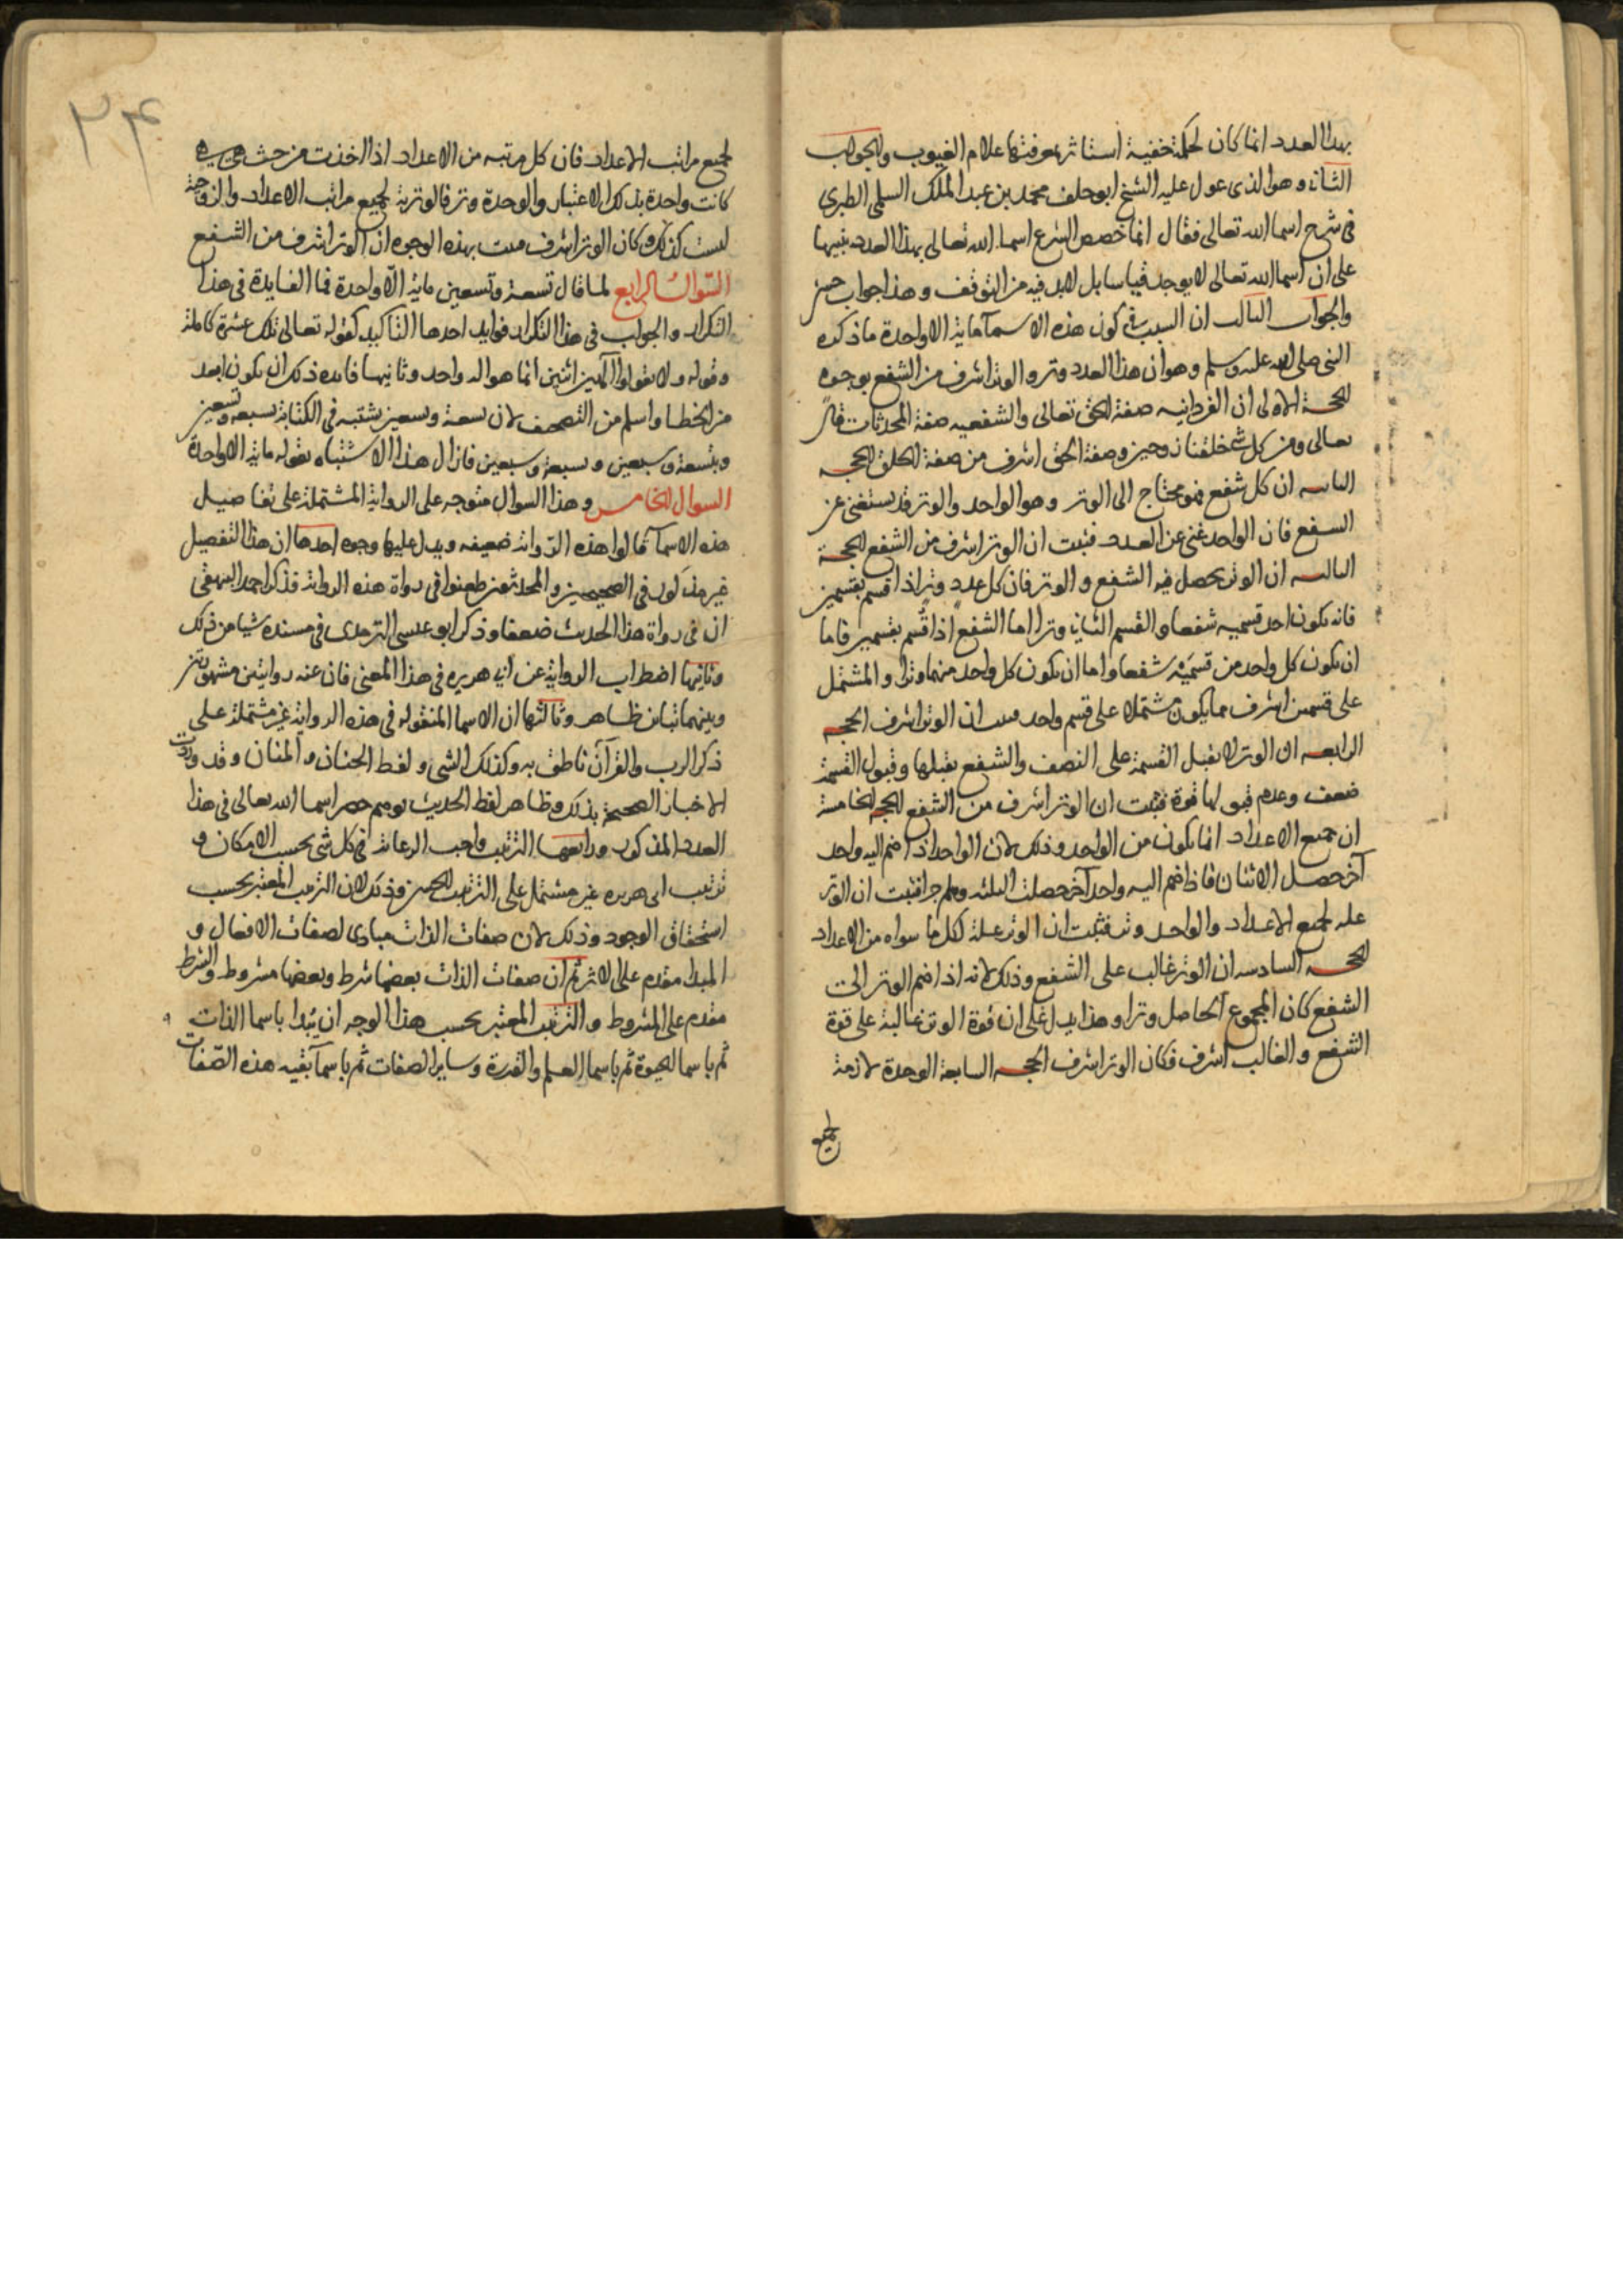 بهذا العدد انما كان لحكمة خفية استاثر بمعرفتها علام الغيوب والجواب
الثاني وهو الذى عول عليه الشيخ ابو خلف محمد بن عبد الملك السلمى الطبرى
فى شرح اسما الله تعالى فقال انما خصص الشرع اسما الله تعالى بهذا العدد تنبيها
على ان اسما الله تعالى لا يوجد قياسا بل لابد فيه من التوقف وهذا جواب حسن
والجواب الثالث ان السبب فى كون هذه الاسمآ ماية الا واحدة ما ذكره
النبى صلى الله عليه وسلم وهو ان هذا العدد وتر والوتر اشرف من الشفع بوجوه
الحجة الاولى ان الفردانيه صفة الحق تعالى والشفعيه صفة المحدثات قال
تعالى ومن كل شى خلقنا زوجين وصفة الحق اشرف من صفة الخلق الحجه
الثانيه ان كل شفع فهو محتاج الى الوتر وهو الواحد والوتر قد يستغنى عن
الشفع فان الواحد غنى عن العدد فثبت ان الوتر اشرف من الشفع الحجة
الثالثه ان الوتر يحصل فيه الشفع والوتر فان كل عدد وتر اذا قسم بقسمين
فانه يكون احد قسميه شفعا والقسم الثانى وترا اما الشفع اذا قسم بقسمين فاما
ان يكون كل واحد من قسميه شفعا واما ان يكون كل واحد منهما وترا والمشتمل
على قسمين اشرف مما يكون مشتملا على قسم واحد فثبت ان الوتر اشرف الحجه
الرابعه ان الوتر لا يقبل القسمة على النصف والشفع يقبلها وقبول القسمة
ضعف وعدم قبولها قوة فثبت ان الوتر اشرف من الشفع الحجه الخامسة
ان جميع الاعداد انما يكون من الواحد وذلك لان الواحد اذا ضم اليه واحد
آخر حصل الاثنان فاذا ضم اليه واحد آخر حصلت الثلثه وهلم جرا فثبت ان الوتر
عله لجميع الاعداد والواحد وتر فثبت ان الوتر علة لكل ما سواه من الاعداد
الحجه السادسه ان الوتر غالب على الشفع وذلك لانه اذا ضم الوتر الى
الشفع كان المجموع الحاصل وترا وهذا يدل على ان قوة الوتر غالبة على قوة
الشفع والغالب اشرف فكان الوتر اشرف الحجه السابعة الوحدة لازمة
لجميع
٢٤
لجميع مراتب الاعداد فان كل مرتبه من الاعداد اذا اخذت من حيث هى هى
كانت واحدة بذلك الاعتبار والوحدة وتر فالوترية لجميع مراتب الاعداد والزوجية
ليست كذلك فكان الوتر اشرف فثبت بهذه الوجوه ان الوتر اشرف من الشفع
السوال الرابع لما قال تسعة وتسعين ماية الا واحدة فما الفايدة فى هذا
التكرار والجواب فى هذا التكرار فوايد احدها التاكيد كقوله تعالى تلك عشرة كاملة
وقوله ولا تقولوا آلهين اثنين انما هو اله واحد وثانيها فايده ذلك ان يكون ابعد
من الخطا واسلم من التصحف لان تسعة وتسعين يشتبه فى الكتابة بسبعة وتسعين
وبتسعة وسبعين وسبعة وسبعين فازال هذا الاشتباه بقوله ماية الا واحدة
السوال الخامس وهذا السوال متوجه على الرواية المشتملة على تفاصيل
هذه الاسمآ قالوا هذه الرواية ضعيفه ويدل عليها وجوه احدها ان هذا التفصيل
غير مذكور فى الصحيحين والمحدثون طعنوا فى رواة هذه الرواية فذكر احمد البيهقى
ان فى رواة هذا الحديث ضعفا وذكر ابو عيسى الترمذى فى مسنده شيا من ذلك
وثانيها اضطراب الرواية عن ابى هريره فى هذا المعنى فان عنه روايتين مشهورتين
وبينهما تباين ظاهر وثالثها ان الاسما المنقوله فى هذه الرواية غير مشتملة على
ذكر الرب والقرآن ناطق به وكذلك الشى ولفظ الحنان والمنان وقد وردت
الاخبار الصحيحة بذلك وظاهر لفظ الحديث يوهم حصر اسما الله تعالى فى هذا
العدد المذكور ورابعها الترتيب واجب الرعاية فى كل شى بحسب الامكان و
ترتيب ابى هريره غير مشتمل على الترتيب الحسن وذلك لان الترتيب المعتبر بحسب
استحقاق الوجود وذلك لان صفات الذات مبادى لصفات الافعال و
المبدا مقدم على الاثر ثم ان صفات الذات بعضها شرط وبعضها مشروط والشرط
مقدم على المشروط والترتيب المعتبر بحسب هذا الوجه ان يبدا باسما الذات
ثم باسما الحيوة ثم باسما العلم والقدرة وساير الصفات ثم باسمآ بقيه هذه الصفات